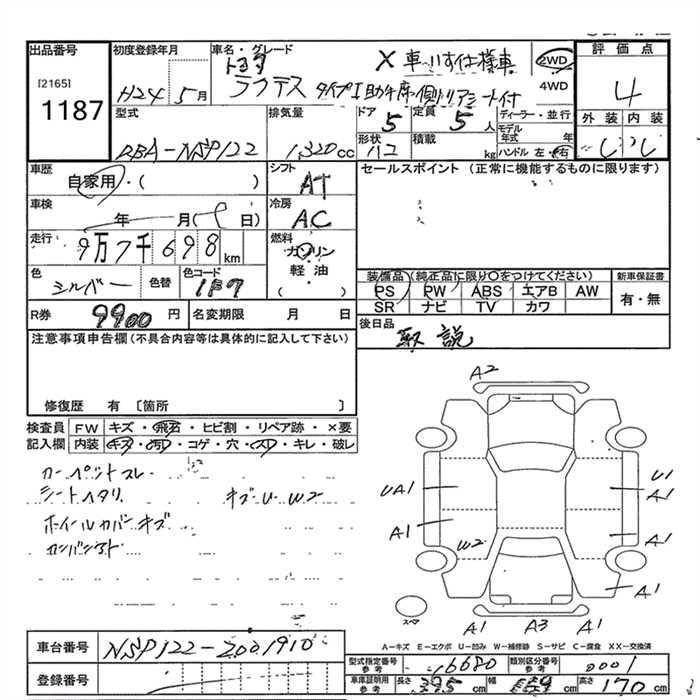 出品番号 初度登録年月 車名・グレード 評価点
[2165]
1187
H24 5月
トヨタ
ラクティス タイプI 助手席側リフトアップシート付
X 車いす仕様車
2WD
4WD
4
外装 内装
型式 排気量 ドア 定員 ディーラー・並行
DBA-NSP122 1,320cc 5 5人
モデル年式 年
形状 積載 kg ハンドル 左・右
ハコ
車歴
自家用・( )
シフト
AT
セールスポイント (正常に機能するものに限ります)
車検
年 月( 日)
冷房
AC
走行
9万7千698km
燃料
ガソリン
軽油
( ・ )
色 色替 色コード
シルバー 1F7
装備品 (純正品に限り○をつけてください) 新車保証書
PS PW ABS エアB AW 有・無
SR ナビ TV カワ
R券 9900円 名変期限 月 日
後日品
取説
注意事項申告欄(不具合内容等は具体的に記入して下さい)
修復歴 有 〔箇所 〕
検査員 FW キズ・飛石・ヒビ割・リペア跡・×要
記入欄 内装 キズ・汚・コゲ・穴・スレ・キレ・破レ
カーペットスレ
シートヘタリ キズ U W2
ホイールカバーキズ
A2
UA1
A1
W2
U1
A1
A1
A1
スペア
A1 A3 A1
A-キズ E-エクボ U-凹み W-補修跡 S-サビ C-腐食 XX-交換済
車台番号 NSP122-2001910
登録番号
型式指定番号 参考 16680 類別区分番号 参考 0001
車庫証明用 参考 長さ 395cm 幅 169cm 高さ 170cm